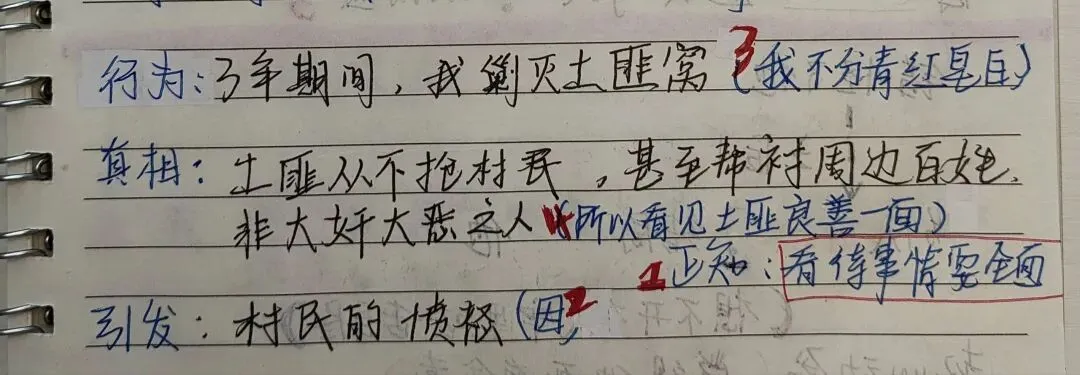 行为：3年期间，我剿灭土匪窝 3（我不分青红皂白）
真相：土匪从不抢村民，甚至帮衬周边百姓．
非大奸大恶之人 4（所以看见土匪良善一面）
1 正知：看待事情要全面
引发：村民的愤怒（因，2